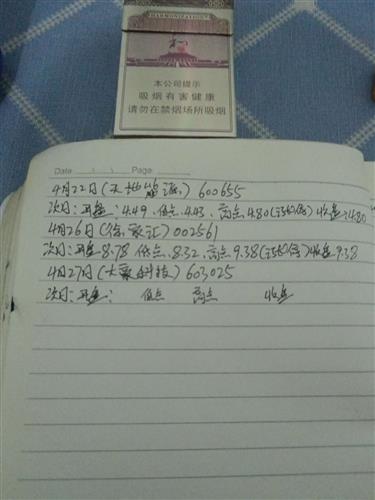 HARMONIZATION
本公司提示
吸烟有害健康
请勿在禁烟场所吸烟
Date Page
4月22日( ) 600655
次日:开盘:4.49,低点4.43,高点4.80(涨幅)收盘:4.80
4月26日(徐家汇)002561
次日:开盘8.78 低点8.32,高点9.38(涨幅)收盘9.38
4月27日(大豪科技)603025
次日:开盘: 低点 高点 收盘